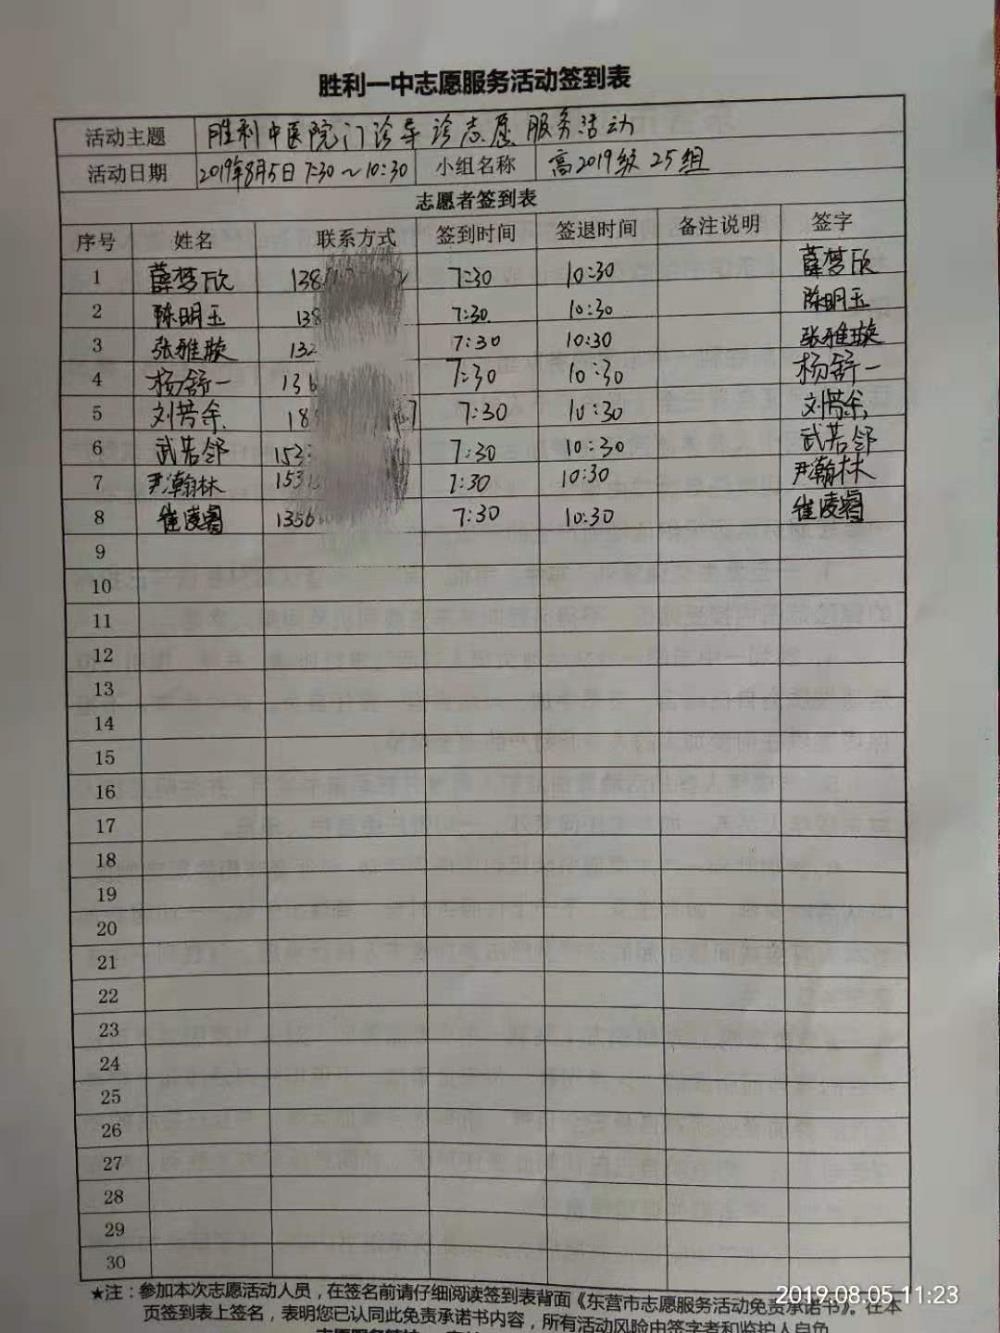 胜利一中志愿服务活动签到表
活动主题 胜利中医院门诊导诊志愿服务活动
活动日期 2019年8月5日 7:30～10:30 小组名称 高2019级25组
志愿者签到表
序号 姓名 联系方式 签到时间 签退时间 备注说明 签字
1 薛梦欣 138 7:30 10:30 薛梦欣
2 陈明玉 138 7:30 10:30 陈明玉
3 张雅璇 132 7:30 10:30 张雅璇
4 杨舒一 136 7:30 10:30 杨舒一
5 刘芳余 18 7:30 10:30 刘芳余
6 武若邻 153 7:30 10:30 武若邻
7 尹瀚林 153 7:30 10:30 尹瀚林
8 崔凌睿 1356 7:30 10:30 崔凌睿
9
10
11
12
13
14
15
16
17
18
19
20
21
22
23
24
25
26
27
28
29
30
★注：参加本次志愿活动人员，在签名前请仔细阅读签到表背面《东营市志愿服务活动免责承诺书》。在本
页签到表上签名，表明您已认同此免责承诺书内容，所有活动风险由签字者和监护人自负
2019.08.05 11:23